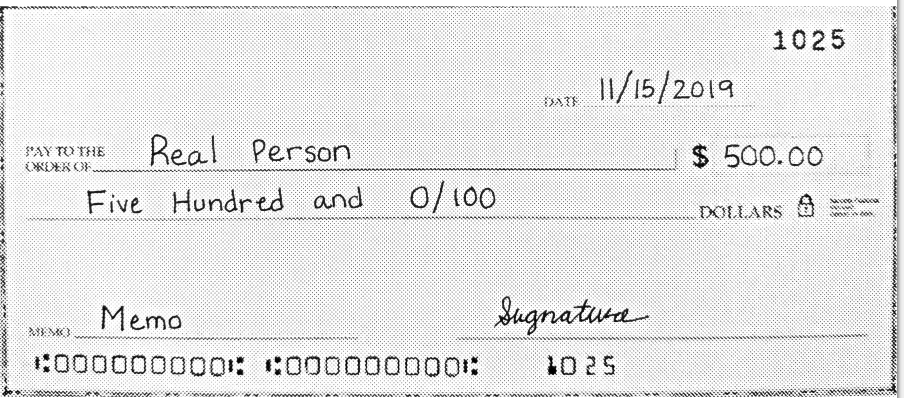 1025
DATE 11/15/2019
PAY TO THE
ORDER OF Real Person $ 500.00
Five Hundred and 0/100 DOLLARS
MEMO Memo Sugnature
⑆000000000⑆ ⑆0000000000⑆ 1025